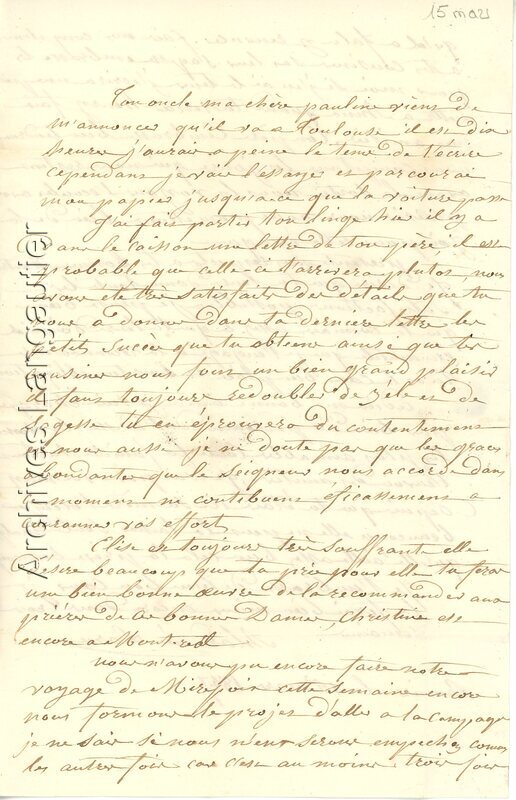 15 mars
Ton oncle ma chère pauline viens de
m'annoncer qu'il va a Toulouse il est dix
heures j'aurai a peine le tems de t'écrire
cependans je vais l'essayer et parcourai
mon papier jusqu'a ce que la voiture passe
J'ai fais partir ton linge hier il y a
dans le caisson une lettre de ton père, il est
probable que celle-ci t'arrivera plutos, nous
avons été très satisfaits des détails que tu
nous a donné dans ta dernière lettre les
petits succès que tu obtiens ainsi que tes
cousines nous fons un bien grand plaisir
il faus toujours redoubler de zèle et de
sagesse tu en éprouvera du contentemens
et nous aussi je ne doute pas que les graces
abondantes que le Seigneur nous accorde dans
momens ne contibuens éficassemens a
couronner vos efforts
Elise es toujours très souffrante elle
désire beaucoup que tu prie pour elle tu feras
une bien bonne œuvre de la recommander aux
prières de ces bonnes Dames, Christine est
encore a Montréal
nous n'avons pu encore faire notre
voyage de Mirepoix cette semaine encore
nous formons le projes d'aller a la campagne
je ne sais si nous n'en serons empechés comme
les autres fois car c'est au moins trois fois
Archives Langautier